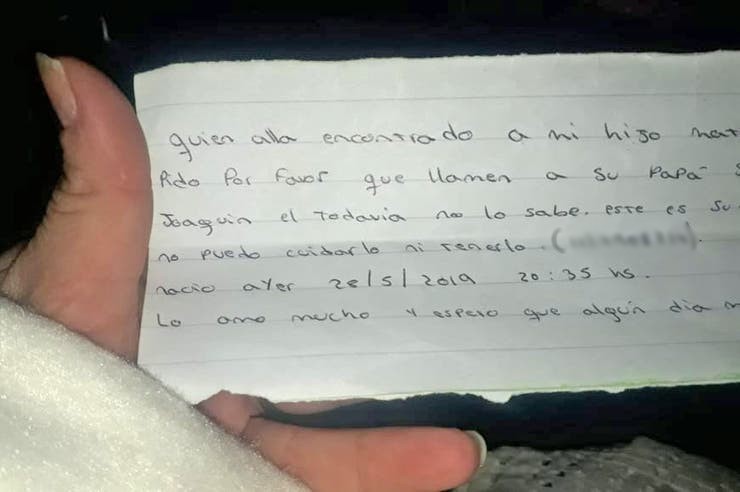 quien alla encontrado a mi hijo
Pido Por favor que llamen a su Papá
Joaquin el Todavia no lo sabe. este es su
no puedo cuidarlo ni tenerlo. ( ).
nacio ayer 28/5/2019 20:35 hs.
Lo amo mucho y espero que algún dia